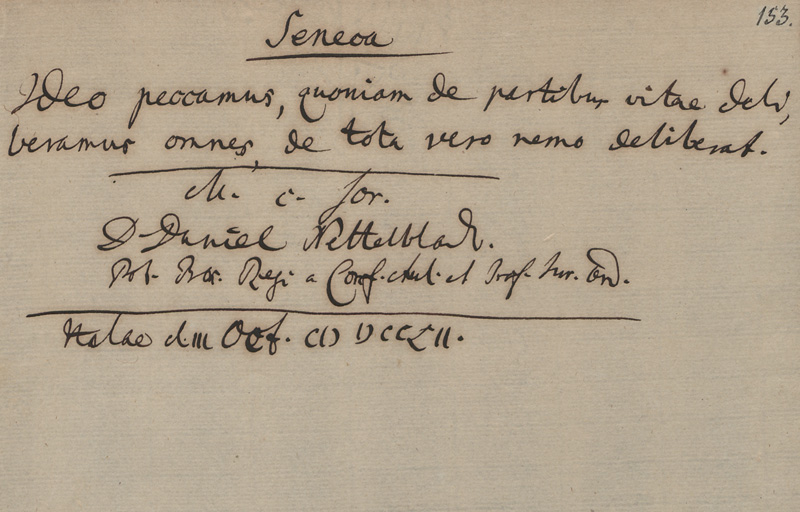 153.
Seneca
Ideo peccamus, quoniam de partibus vitae deli,
beramus omnes, de tota vero nemo deliberat.
M. c. scr.
D. Daniel Nettelbladt.
Pot. Bor. Regi a Cons. aul. et Prof. Jur. Ord.
Halae d. III Oct. CIƆ IƆ CCLII.